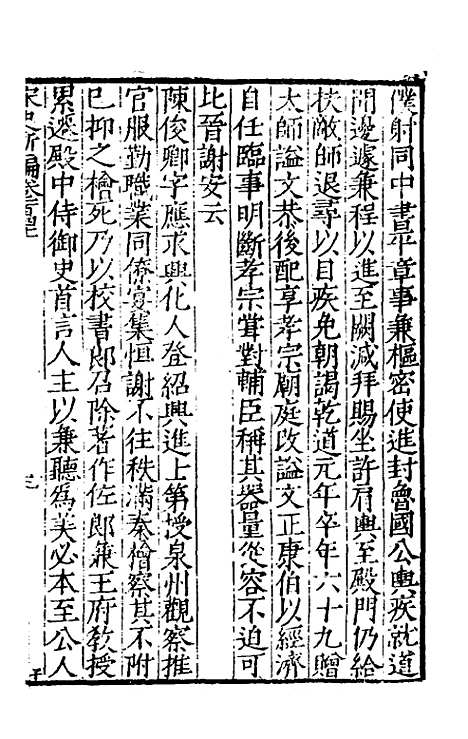 僕射同中書平章事兼樞密使進封魯國公輿疾就道
聞邊遽兼程以進至闕減拜賜坐許肩輿至殿門仍給
扶敵師退尋以目疾免朝謁乾道元年卒年六十九贈
太師謚文恭後配享孝宗廟庭改謚文正康伯以經濟
自任臨事明斷孝宗甞對輔臣稱其器量從容不迫可
比晉謝安云
陳俊卿字應求興化人登紹興進士第授泉州觀察推
官服勤職業同僚宴集恒謝不往秩滿秦檜察其不附
巳抑之檜死乃以校書郎召除著作佐郎兼王府教授
累遷殿中侍御史首言人主以兼聽為美必本至公人
宋史新編卷